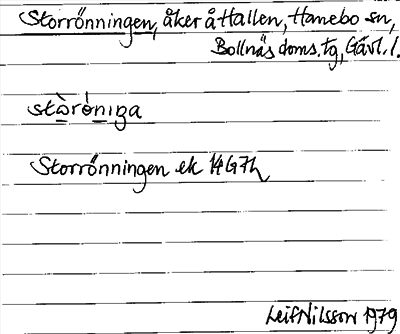 Storrönningen, åker å Hallen, Hanebo sn,
Bollnäs doms. tg, Gävl. l.
stò̱rö́niŋa
Storrönningen ek 14G7h
Leif Nilsson 1979